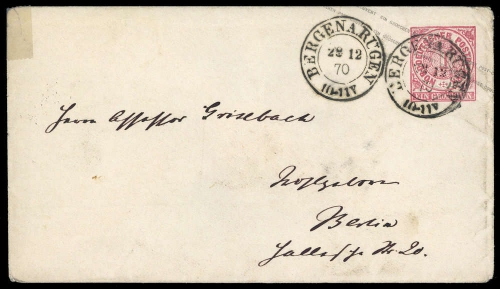 BERGEN A. RÜGEN
28 12
70
10-11V
BERGEN A. RÜGEN
12
10-11V
Herrn Assessor Grisebach
Wohlgeboren
Berlin
Nr. 20.